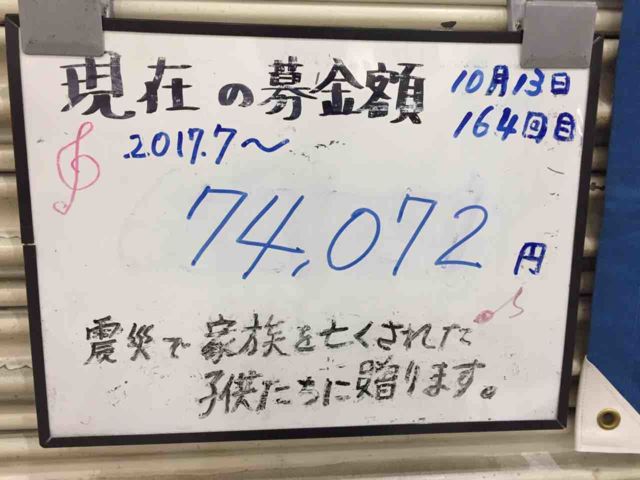 現在の募金額
10月13日
164回目
.2017.7〜
74,072円
震災で家族を亡くされた
子供たちに贈ります。